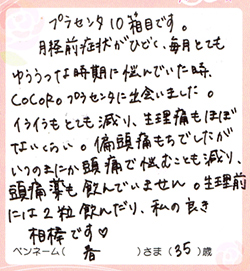 プラセンタ10箱目です。
月経前症状がひどく、毎月とても
ゆううつな時期に悩んでいた時、
COCOROプラセンタに出会いました。
イライラもとても減り、生理痛もほぼ
ないくらい。偏頭痛もちでしたが
いつのまにか頭痛で悩むことも減り、
頭痛薬も飲んでいません。生理前
には2粒飲んだり、私の良き
相棒です♡
ペンネーム( 春 )さま(35)歳